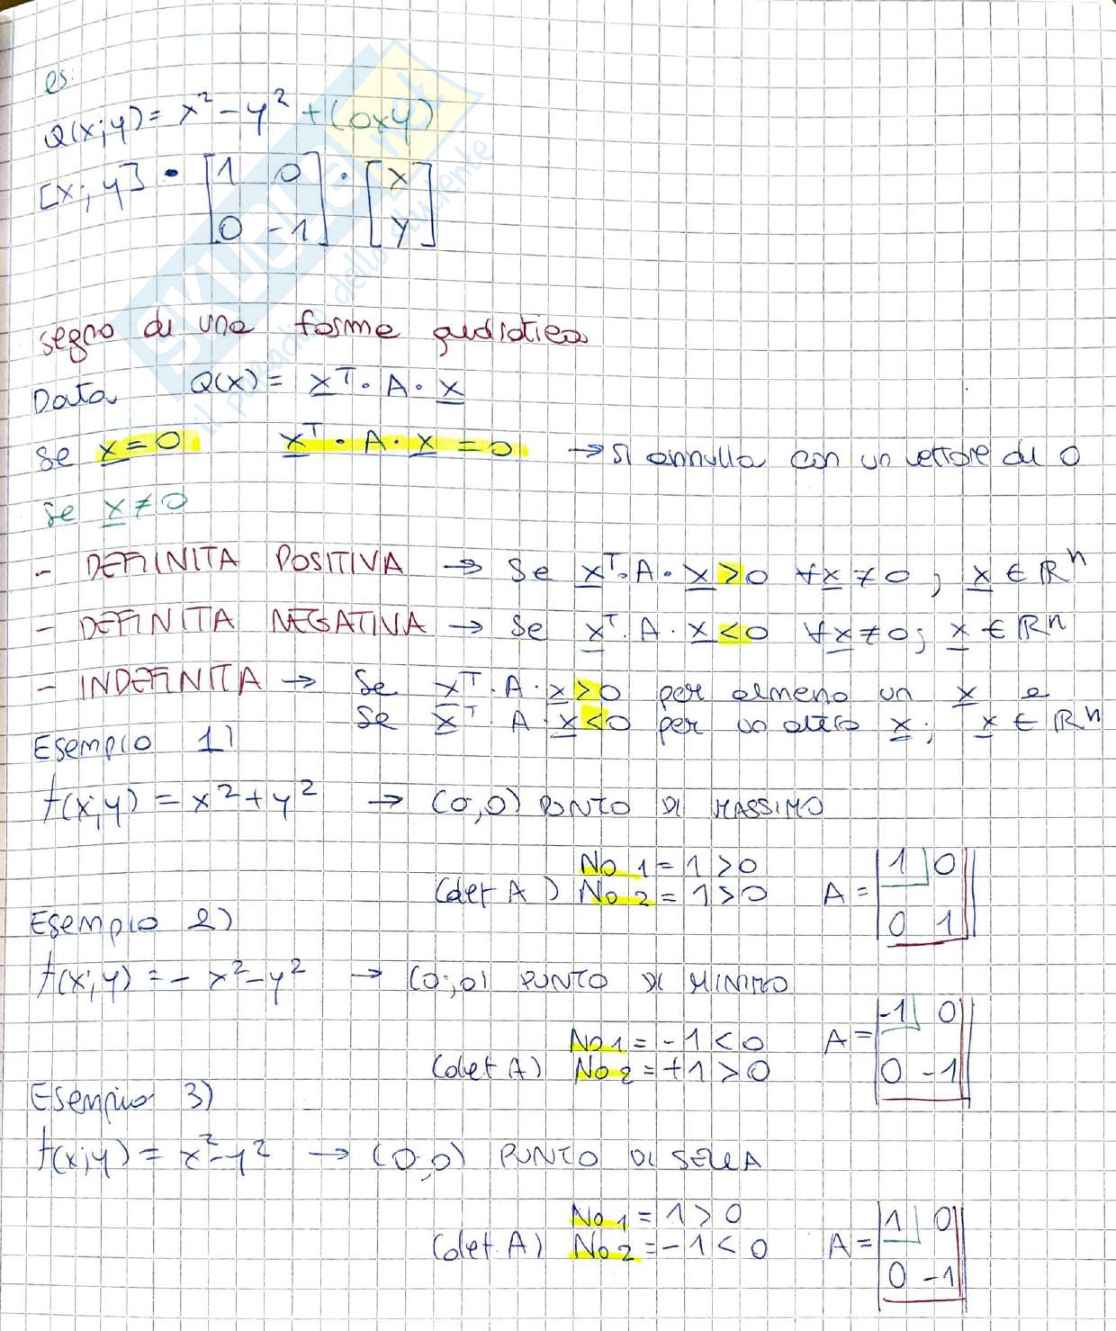 es:
Q(x;y) = x² - y² + (0xy)
[x; y] • [1 0] • [x]
[0 -1] [y]
segno di una forma quadratica
Data Q(x) = x^T • A • x
se x = 0 x^T • A • x = 0 → si annulla con un vettore di 0
se x ≠ 0
- DEFINITA POSITIVA → se x^T • A • x > 0 ∀x ≠ 0 ; x ∈ ℝ^n
- DEFINITA NEGATIVA → se x^T • A • x < 0 ∀x ≠ 0 ; x ∈ ℝ^n
- INDEFINITA → se x^T • A • x > 0 per almeno un x e
se x^T • A • x < 0 per un altro x ; x ∈ ℝ^n
Esempio 1)
f(x;y) = x² + y² → (0,0) PUNTO DI MASSIMO
No 1 = 1 > 0
(det A) No 2 = 1 > 0 A = |1 0|
|0 1|
Esempio 2)
f(x;y) = - x² - y² → (0;0) PUNTO DI MINIMO
No 1 = -1 < 0 A = |-1 0|
(det A) No 2 = +1 > 0 |0 -1|
Esempio 3)
f(x;y) = x² - y² → (0,0) PUNTO DI SELLA
No 1 = 1 > 0 |1 0|
(det A) No 2 = -1 < 0 A = |0 -1|
SKUOLA.net
il paradiso dello studente